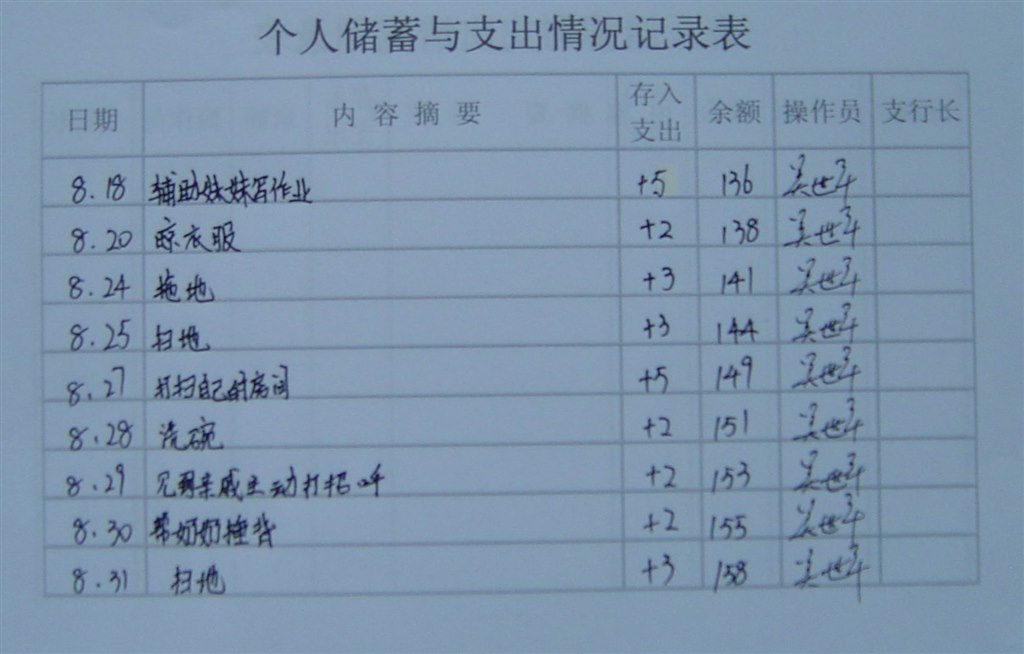 个人储蓄与支出情况记录表
日期 内容摘要 存入支出 余额 操作员 支行长
8.18 辅助妹妹写作业 +5 136 吴世军
8.20 晾衣服 +2 138 吴世军
8.24 拖地 +3 141 吴世军
8.25 扫地 +3 144 吴世军
8.27 打扫自己的房间 +5 149 吴世军
8.28 洗碗 +2 151 吴世军
8.29 见到亲戚主动打招呼 +2 153 吴世军
8.30 帮奶奶捶背 +2 155 吴世军
8.31 扫地 +3 158 吴世军